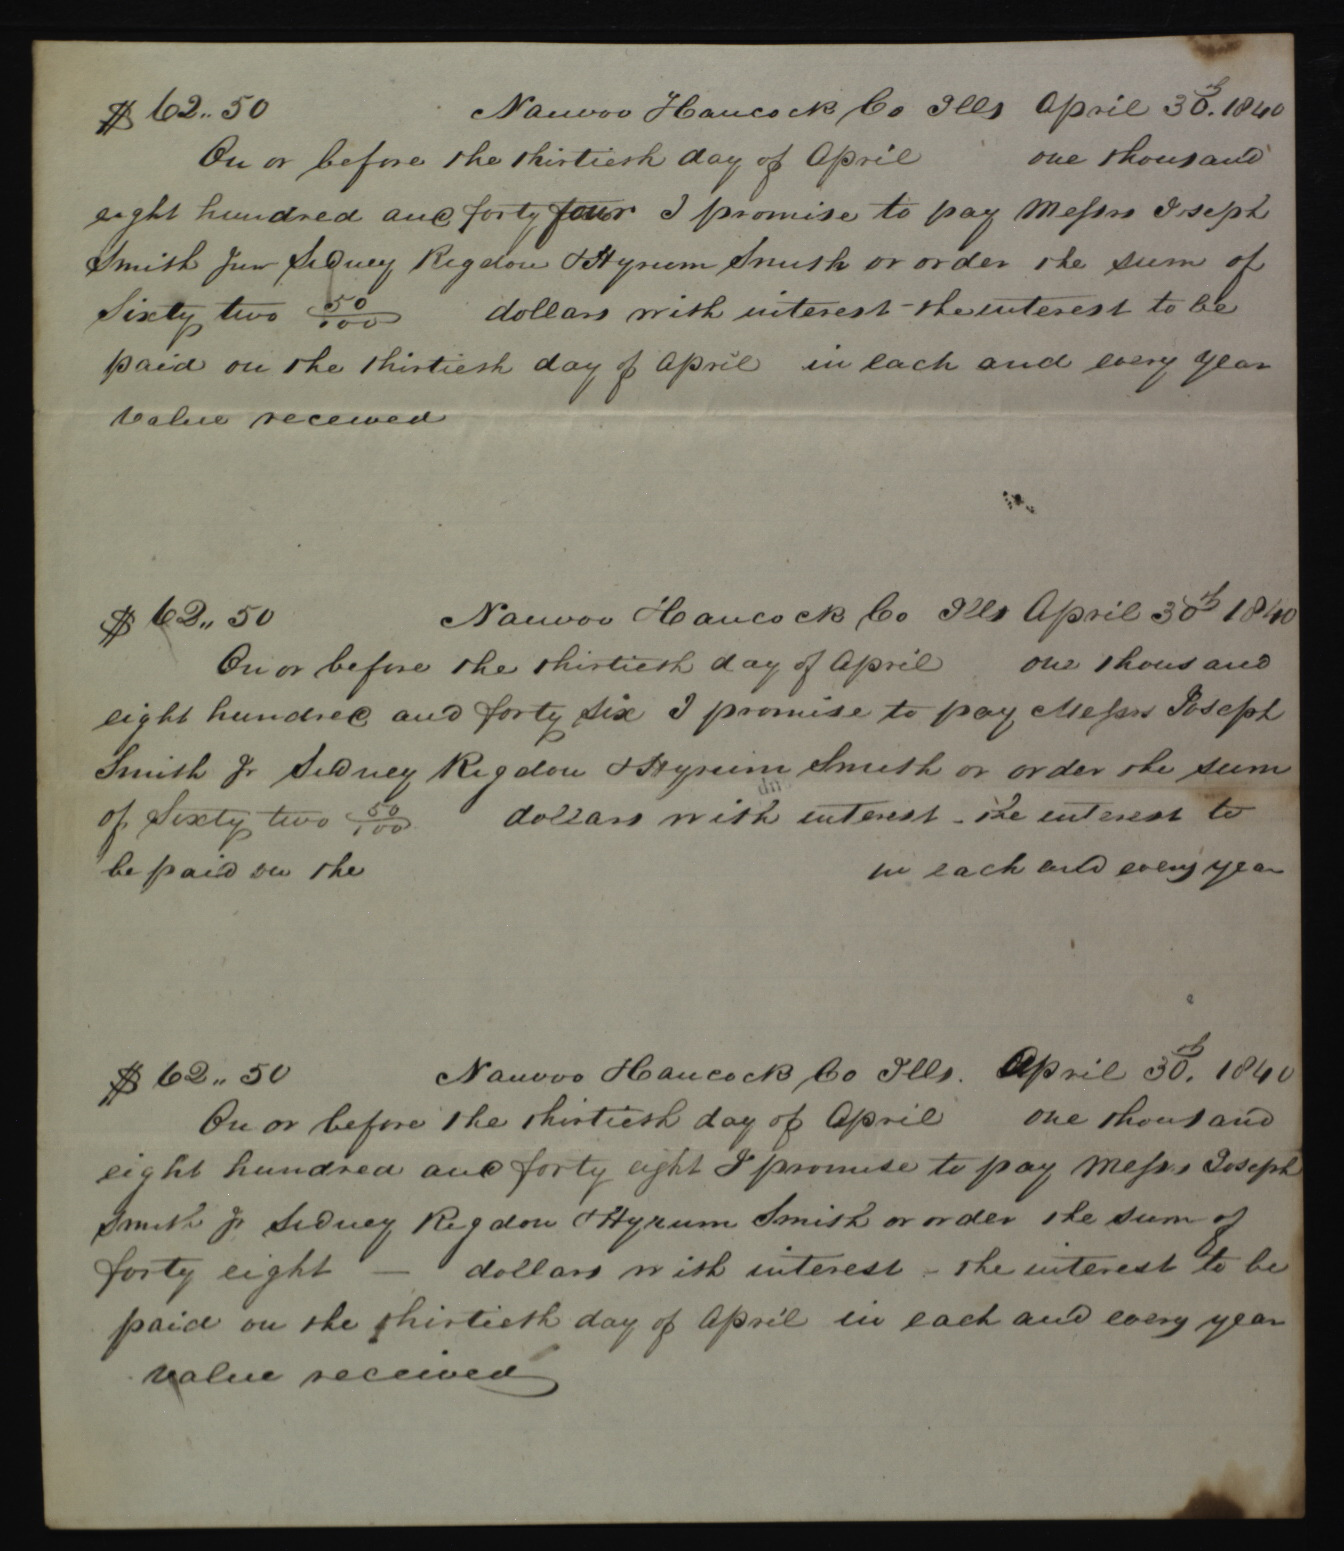 $ 62.. 50 Nauvoo Hancock Co Ills April 30th. 1840
On or before the thirtieth day of April one thousand
eight hundred and forty four I promise to pay Messrs Joseph
Smith Junr Sidney Rigdon & Hyrum Smith or order the sum of
Sixty two 50/100 dollars with interest - the interest to be
paid on the thirtieth day of April in each and every year
value received
$ 62.. 50 Nauvoo Hancock Co Ills April 30th 1840
On or before the thirtieth day of April one thousand
eight hundred and forty six I promise to pay Messrs Joseph
Smith Jr Sidney Rigdon & Hyrum Smith or order the sum
of Sixty two 50/100 dollars with interest - the interest to
be paid on the in each and every year
$ 62.. 50 Nauvoo Hancock Co Ills. April 30th. 1840
On or before the thirtieth day of April one thousand
eight hundred and forty eight I promise to pay Messrs Joseph
Smith Jr Sidney Rigdon & Hyrum Smith or order the sum of
forty eight — dollars with interest - the interest to be
paid on the thirtieth day of April in each and every year
value received